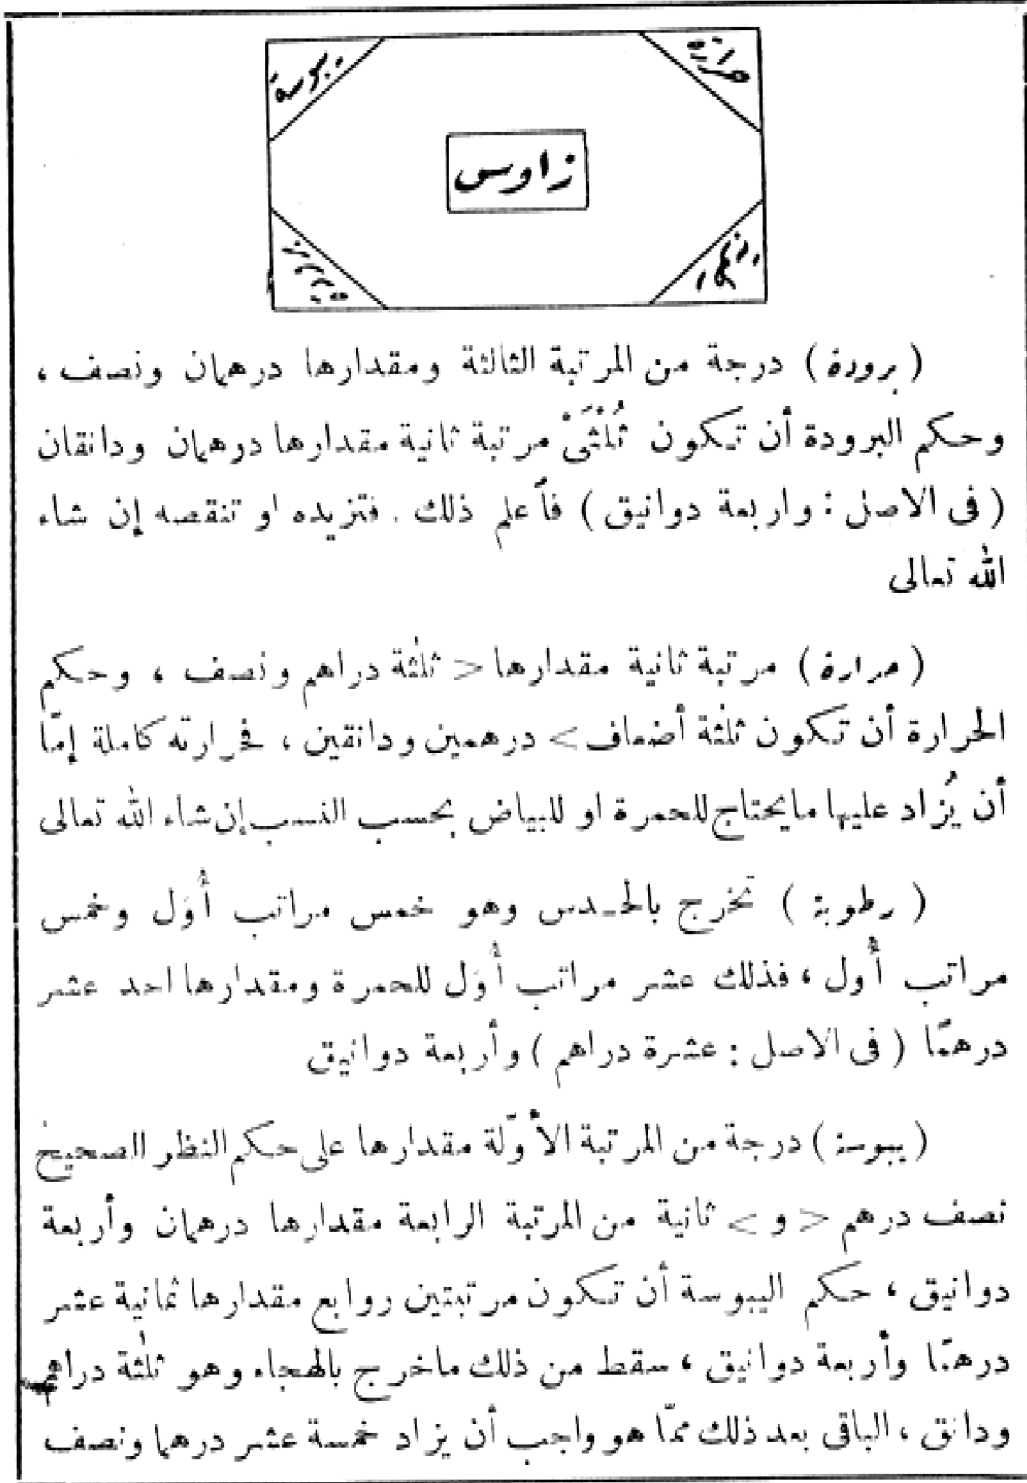 حرارة
يبوسة
زاوس
برودة
(برودة) درجة من المرتبة الثالثة ومقدارها درهمان ونصف ،
وحكم البرودة أن تكون ثُلْثَىْ مرتبة ثانية مقدارها درهمان ودانقان
(فى الاصل : واربعة دوانيق) فٱعلم ذلك . فتزيده او تنقصه إن شاء
الله تعالى
(حرارة) مرتبة ثانية مقدارها < ثلٰثة دراهم ونصف ، وحكم
الحرارة أن تكون ثلٰثة أضعاف > درهمين ودانقين ، فحرارته كاملة إمّا
أن يُزاد عليها مايحتاج للحمرة او للبياض بحسب النسب إن شاء الله تعالى
(رطوبة) تخرج بالحدس وهو خمس مراتب أُوَل وخمس
مراتب أُول ، فذلك عشر مراتب أُوَل للحمرة ومقدارها احد عشر
درهمًا (فى الاصل : عشرة دراهم) وأربعة دوانيق
(يبوسة) درجة من المرتبة الأوّلة مقدارها على حكم النظر الصحيح
نصف درهم < و > ثانية من المرتبة الرابعة مقدارها درهمان وأربعة
دوانيق ، حكم اليبوسة أن تكون مرتبتين روابع مقدارها ثمانية عشر
درهمًا وأربعة دوانيق ، سقط من ذلك ماخرج بالهجاء وهو ثلٰثة دراهم
ودانق ، الباقى بعد ذلك ممّا هو واجب أن يزاد خمسة عشر درهما ونصف